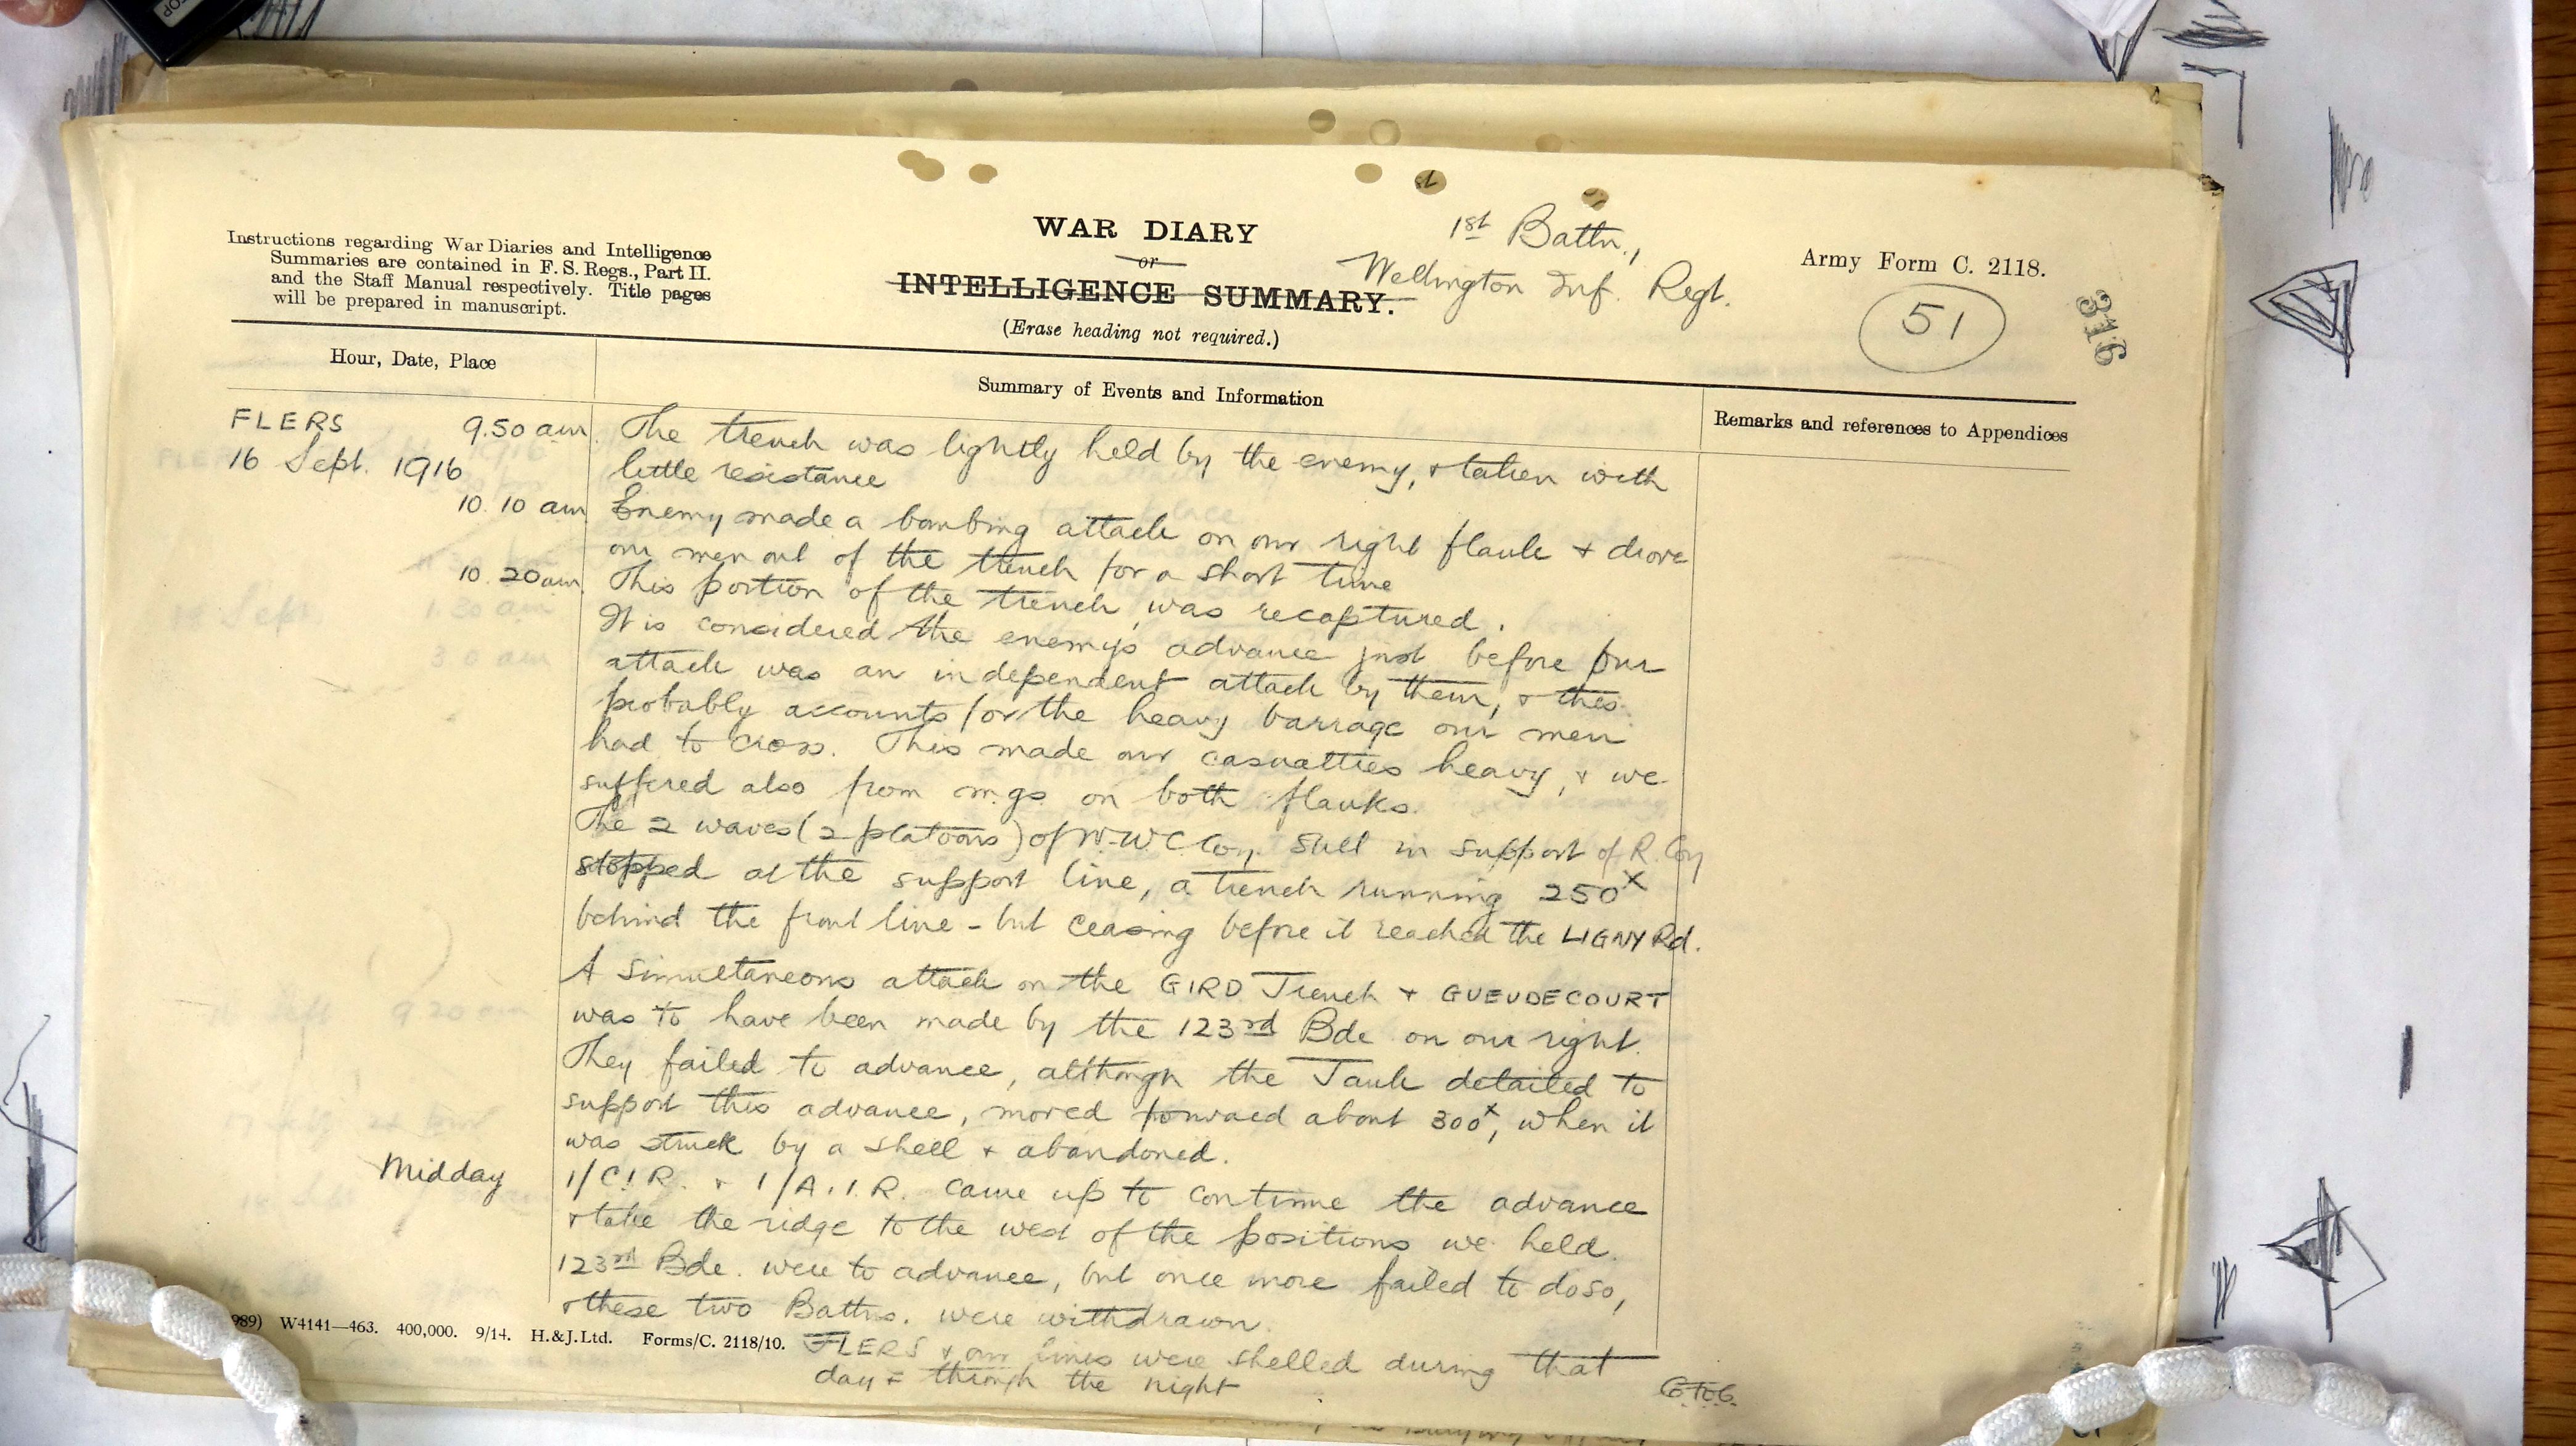 WAR DIARY
or
INTELLIGENCE SUMMARY.
(Erase heading not required.)
Instructions regarding War Diaries and Intelligence
Summaries are contained in F. S. Regs., Part II.
and the Staff Manual respectively. Title pages
will be prepared in manuscript.
1st Battn.,
Wellington Inf. Regt.
Army Form C. 2118.
51
316
Hour, Date, Place
Summary of Events and Information
Remarks and references to Appendices
FLERS 9.50 am. The trench was lightly held by the enemy, & taken with
16 Sept. 1916 little resistance
10.10 am Enemy made a bombing attack on our right flank & drove
our men out of the trench for a short time
10.20 am. This portion of the trench was recaptured.
It is considered the enemy's advance just before our
attack was an independent attack by them, & this
probably accounts for the heavy barrage our men
had to cross. This made our casualties heavy, & we
suffered also from m.gs. on both flanks.
The 2 waves (2 platoons) of W.W.C. Coy. still in support of R. Coy
stopped at the support line, a trench running 250x
behind the front line - but ceasing before it reached the LIGNY Rd.
A simultaneous attack on the GIRD Trench & GUEUDECOURT
was to have been made by the 123rd Bde on our right.
They failed to advance, although the Tank detailed to
support this advance, moved forward about 300x, when it
was struck by a shell & abandoned.
Midday 1/C.I.R. & 1/A.I.R. came up to continue the advance
& take the ridge to the west of the positions we held.
123rd Bde. were to advance, but once more failed to do so,
& these two Battns. were withdrawn.
FLERS & our lines were shelled during that
day & through the night
989) W4141—463. 400,000. 9/14. H.&J.Ltd. Forms/C. 2118/10.